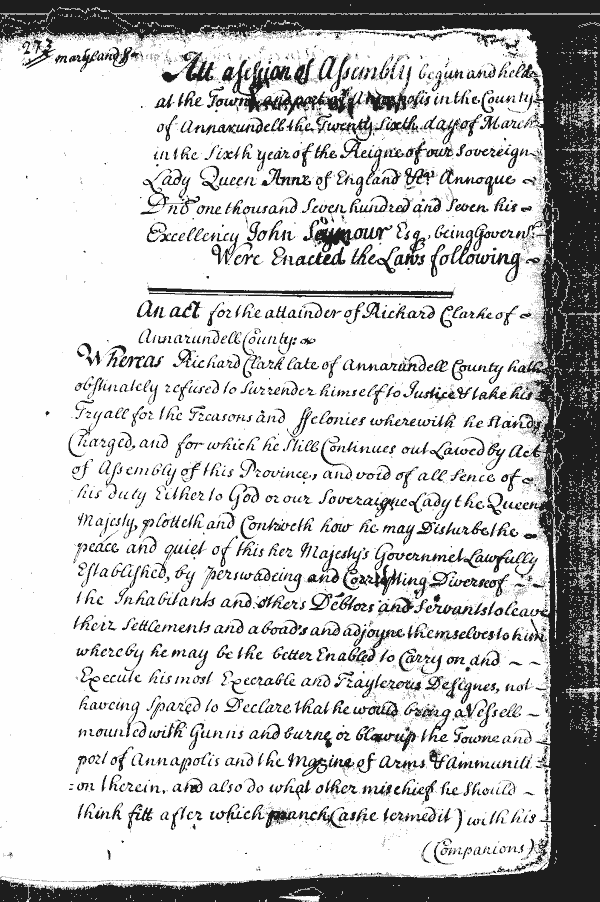 273
maryland ss
Att a session of Assembly begun and held
at the Towne and port of Annapolis in the County
of Annarundell the Twenty Sixth day of March
in the Sixth year of the Reigne of our Sovereign
Lady Queen Anne of England &c Annoque
Dnŏ one thousand Seven hundred and Seven his
Excellency John Seymour Esq, being Govern.
Were Enacted the Laws following
An act for the attainder of Richard Clarke of
Annarundell County
Whereas Richard Clark late of Annarundell County hath
obstinately refused to Surrender himself to Justice & take his
Tryall for the Treasons and ffelonies wherewith he stands
Charged, and for which he still Continues out Lawed by Act
of Assembly of this Province, and void of all sence of
his duty Either to God or our Soveraigne Lady the Queens
Majesty, plotteth and Contriveth how he may Disturbe the
peace and quiet of this her Majesty's Governmet Lawfully
Established, by perswadeing and Corrupting Divers of
the Inhabitants and others Debtors and Servants to leave
their Settlements and aboad's and adjoyne themselves to him
whereby he may be the better Enabled to Carry on and
Execute his most Execrable and Trayterous Designes, not
haveing Spared to Declare that he would bring a Vessell
mounted with Gunns and burne or blow up the Towne and
port of Annapolis and the Magzine of Arms & Ammuniti
=on therein, and also do what other mischief he should
think fitt after which (as he termed it) with his
(Companions)